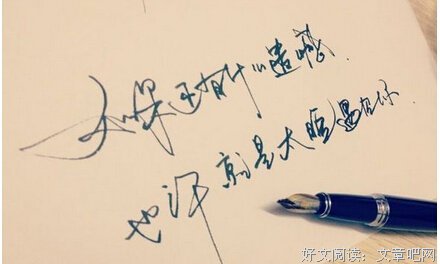 如果还有什么遗憾
也许就是太晚遇见你.
好文阅读：文章吧网